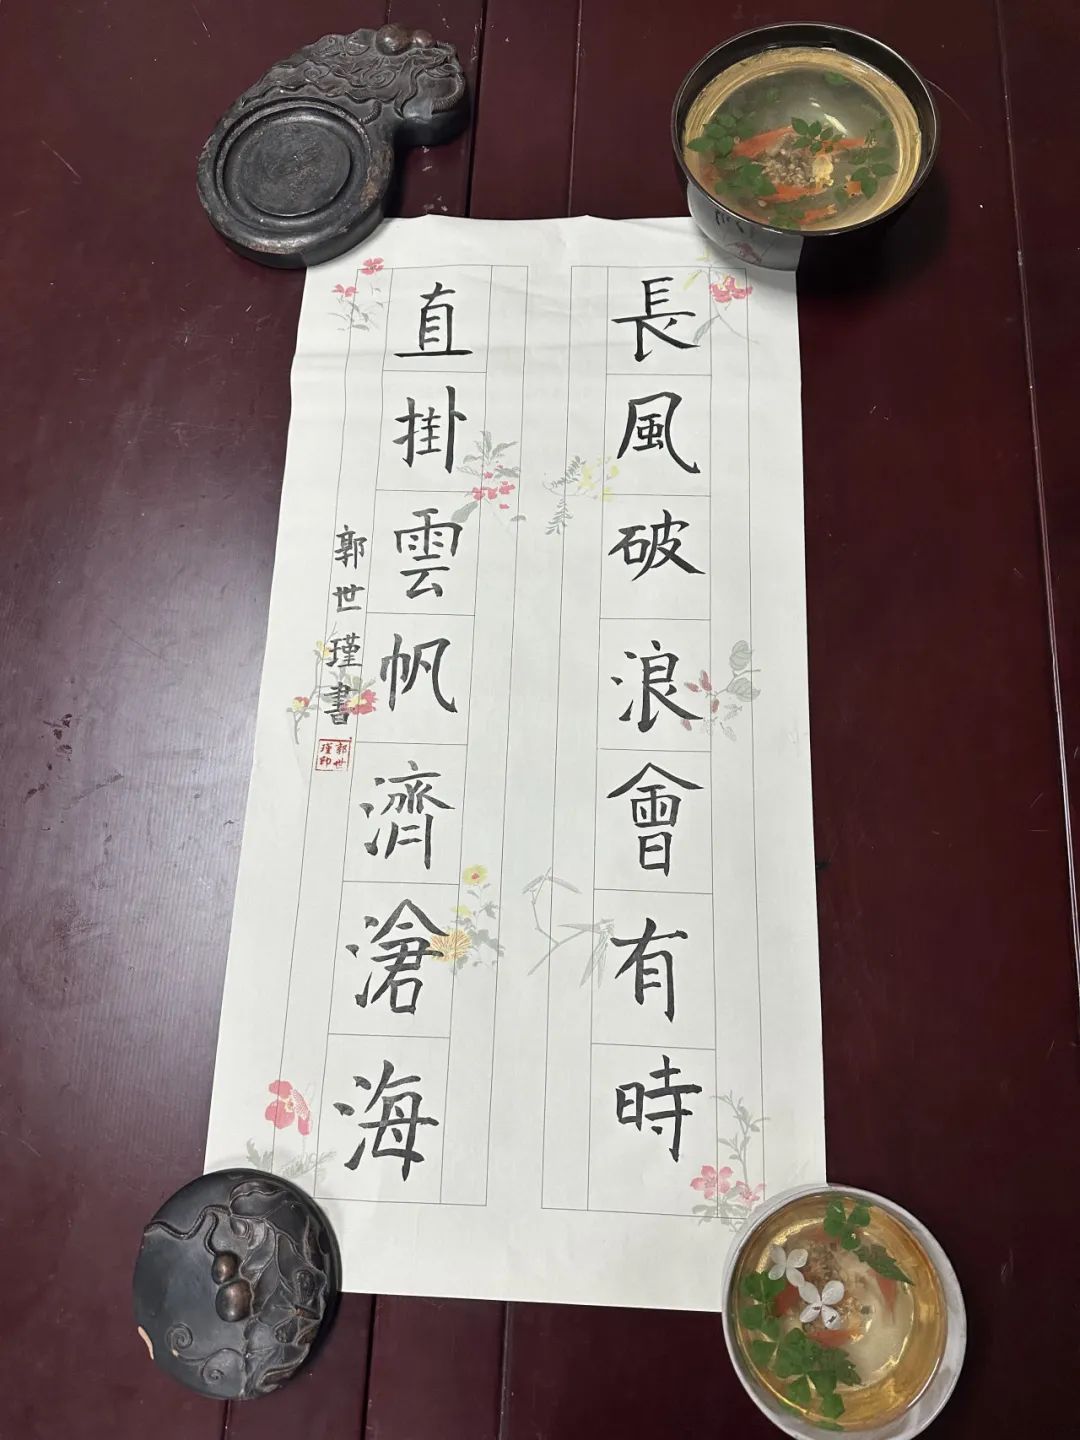 長風破浪會有時
直掛雲帆濟滄海
郭世瑾書
郭世
瑾印